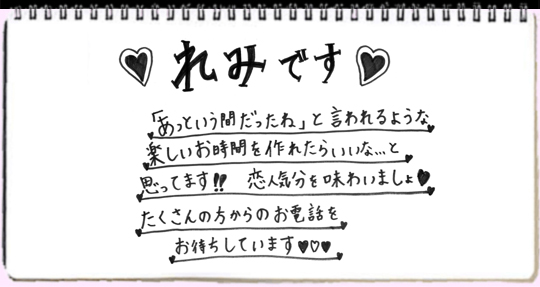 ♥れみです♥
「あっという間だったね」と言われるような
楽しいお時間を作れたらいいな…と
思ってます!! 恋人気分を味わいましょ♥
たくさんの方からのお電話を
お待ちしています♥♡♥